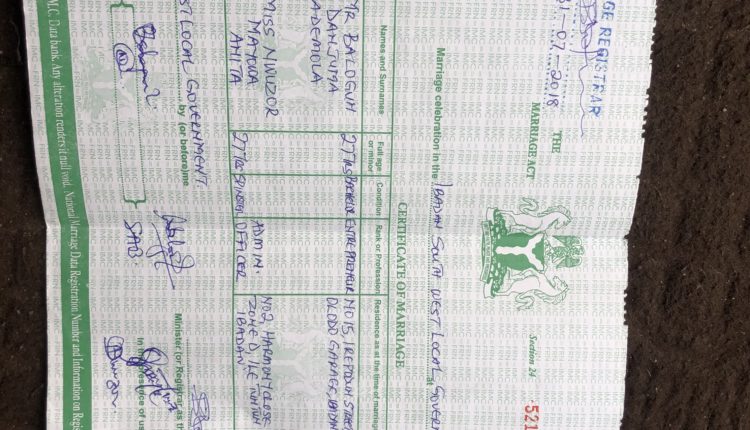 GE REGISTRAR
31-07-2018
THE
MARRIAGE ACT
Section 24
521
Marriage celebration in the IBADAN SOUTH WEST LOCAL GOVERN
CERTIFICATE OF MARRIAGE
Names and Surnames
Full age or minor
Condition
Rank or Profession
Residence as at the time of marriage
MR BALOGUN
DANJUMA
ADEMOLA
27YRS
BACHELOR
ENTREPRENEUR
NO 15, IREPODUN STREET
GARAGE, IBADAN
MISS NWUZOR
MATUWA
ANITA
27YRS
SPINSTER
ADMIN.
OFFICER
NO2, HARMONY CLOSE
ZONE D, ILE TUNTUN
IBADAN
ST LOCAL GOVERNMENT
by (or before) me
Minister (or Registrar as th
In the presence of us
M.C. Data bank. Any alteration renders it null void. National Marriage Data Registration Number and Information on Regis